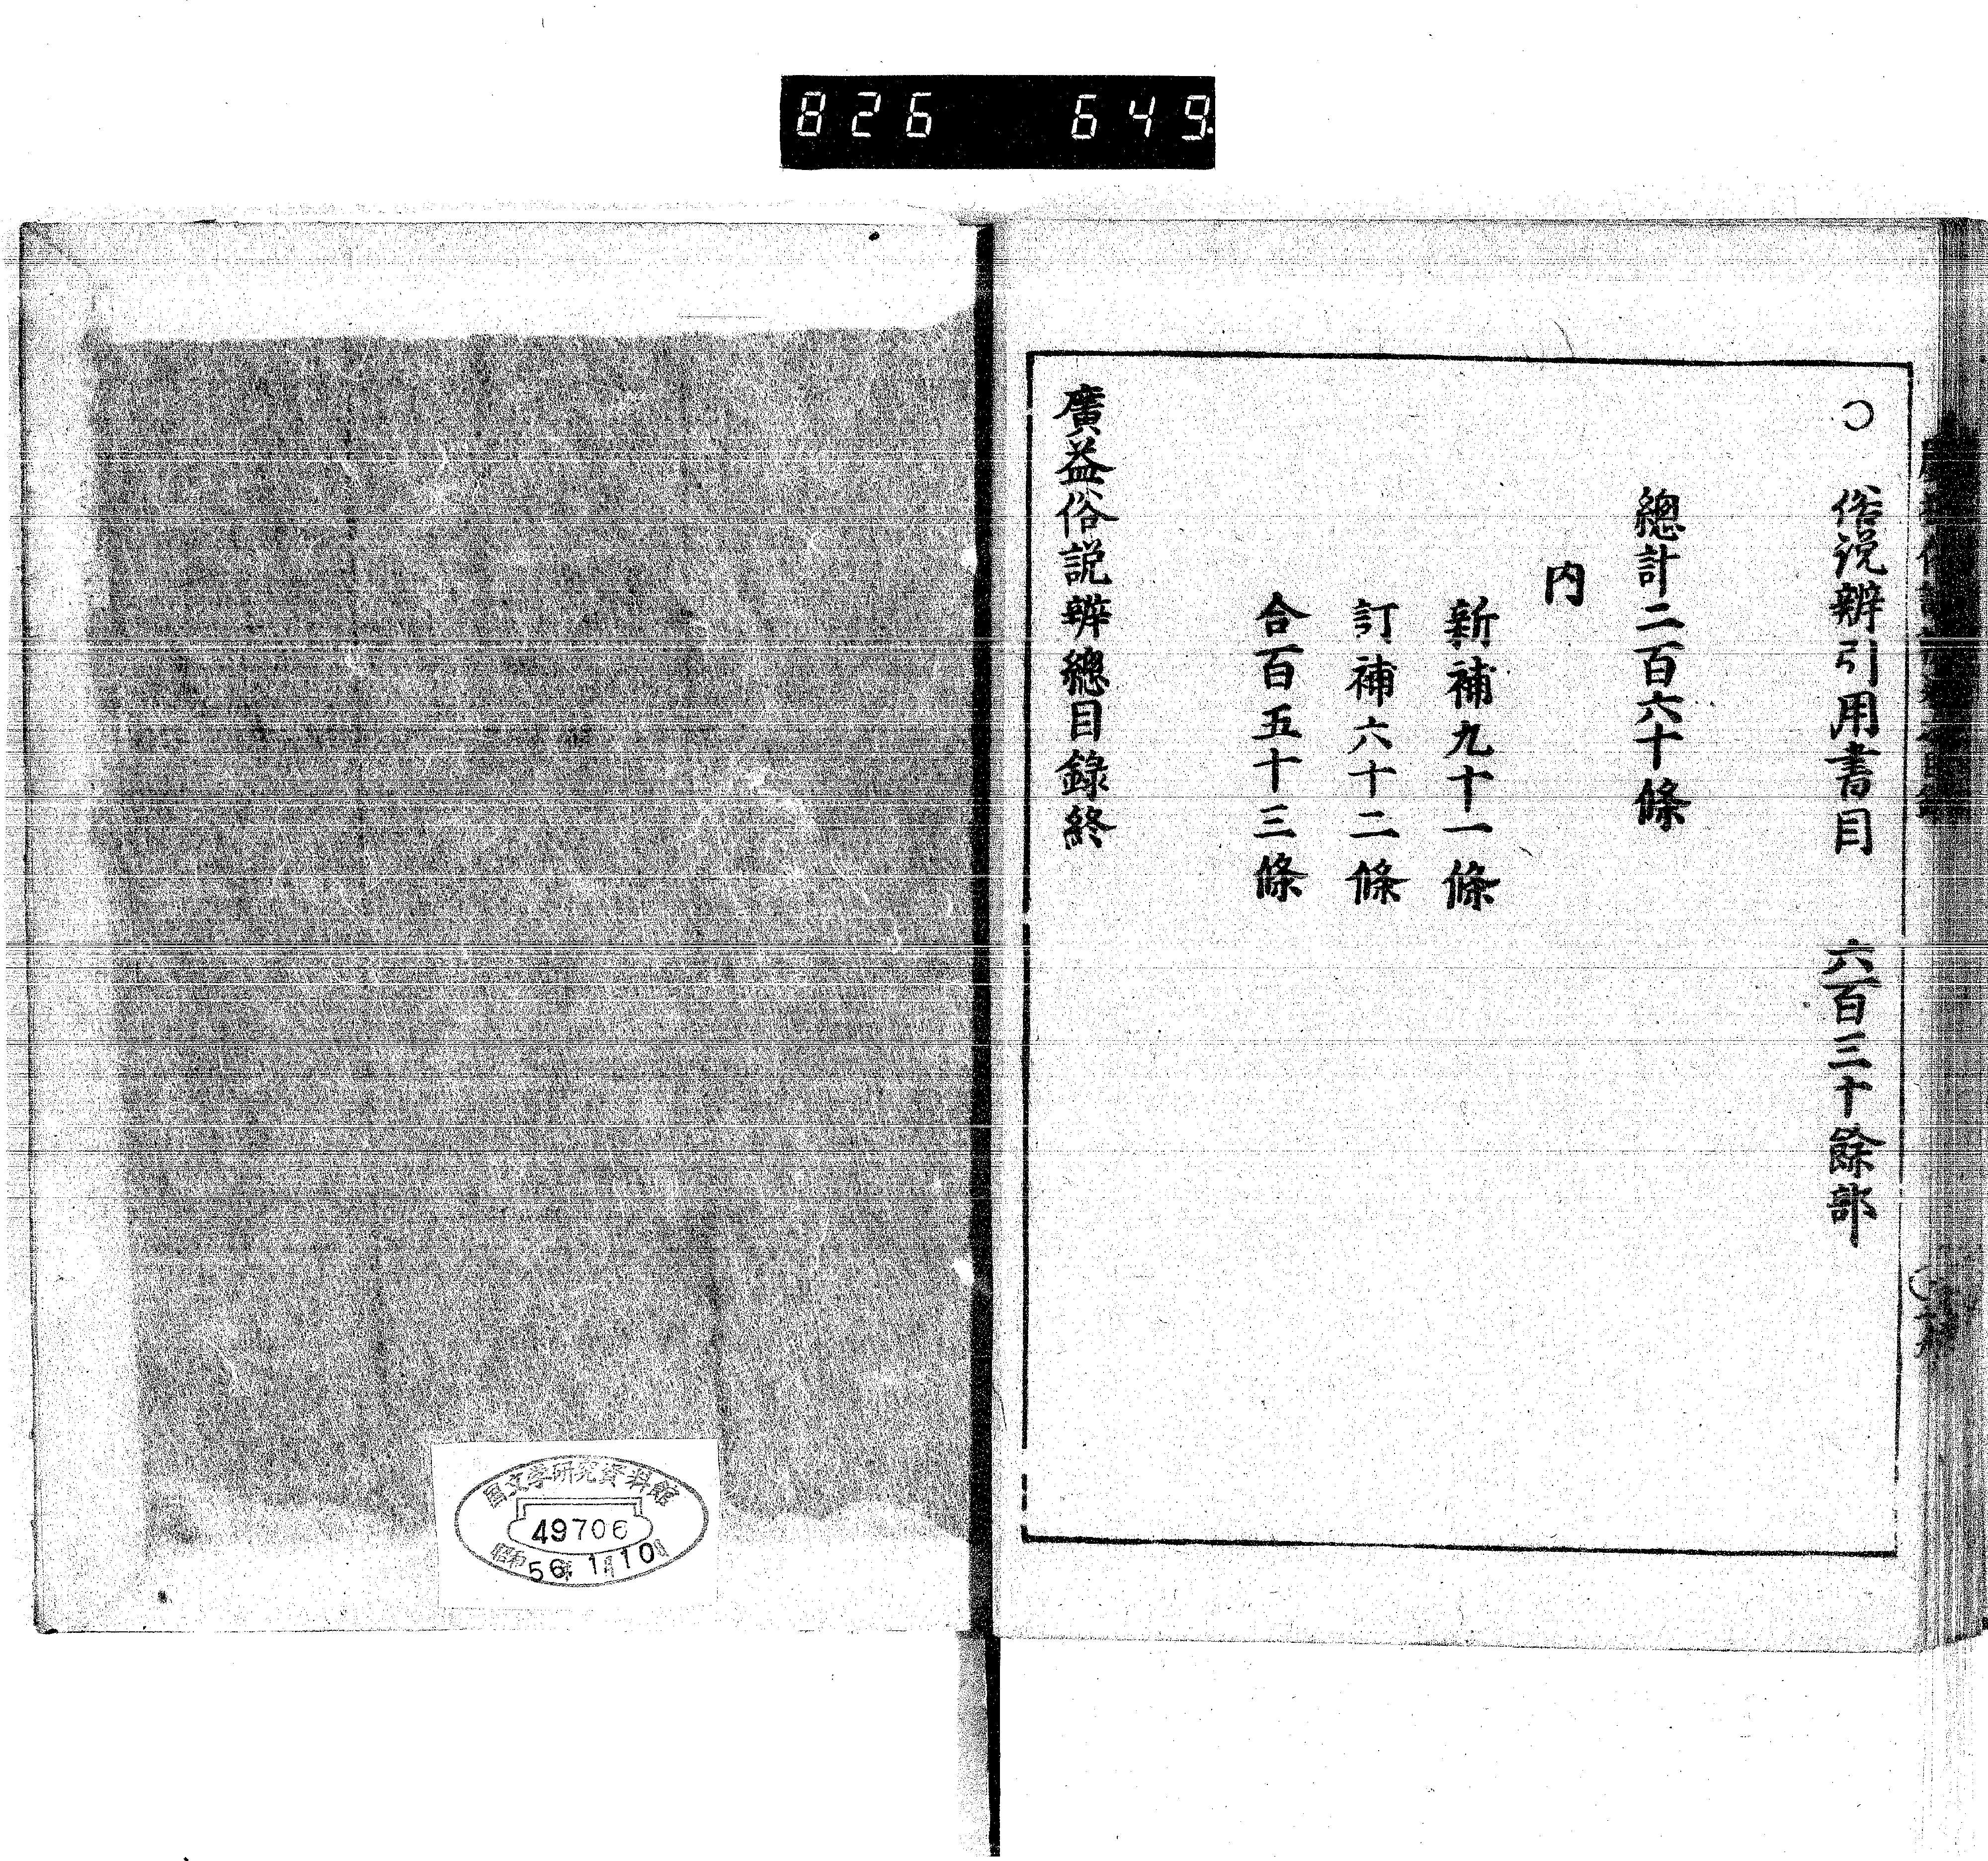 826 649
〇 俗説辨引用書目 六百三十餘部
總計二百六十條
内
新補九十一條
訂補六十二條
合百五十三條
廣益俗説辨總目錄終
国文学研究資料館
49706
昭和56年1月10日